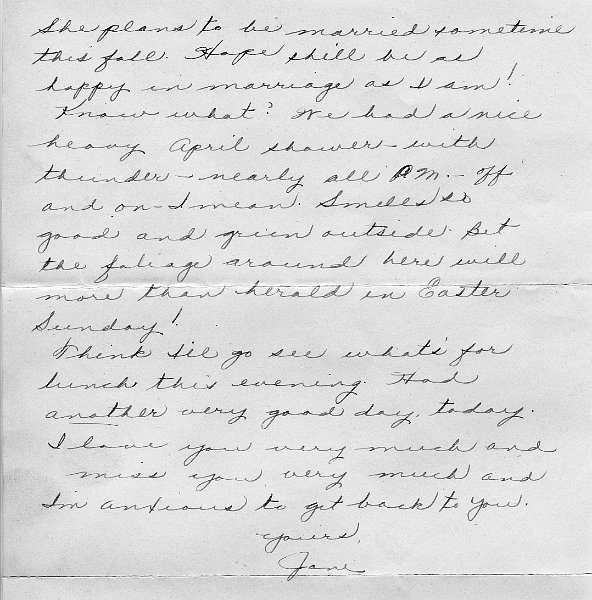 She plans to be married sometime
this fall. Hope shill be as
happy in marriage as I am!
Know what? We had a nice
heavy April shower - with
thunder - nearly all PM. - off
and on - I mean. Smells so
good and green outside. Bet
the foliage around here will
more than herald in Easter
Sunday!
Think I'll go see what's for
lunch this evening. Had
another very good day, today.
I love you very much and
miss you very much and
I'm anxious to get back to you.
Yours,
Jane